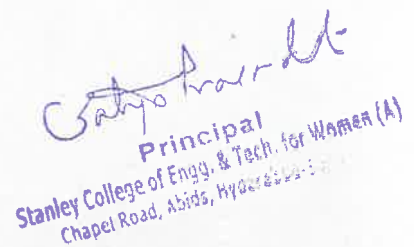 Principal
Stanley College of Engg. & Tech. for Women (A)
Chapel Road, Abids,